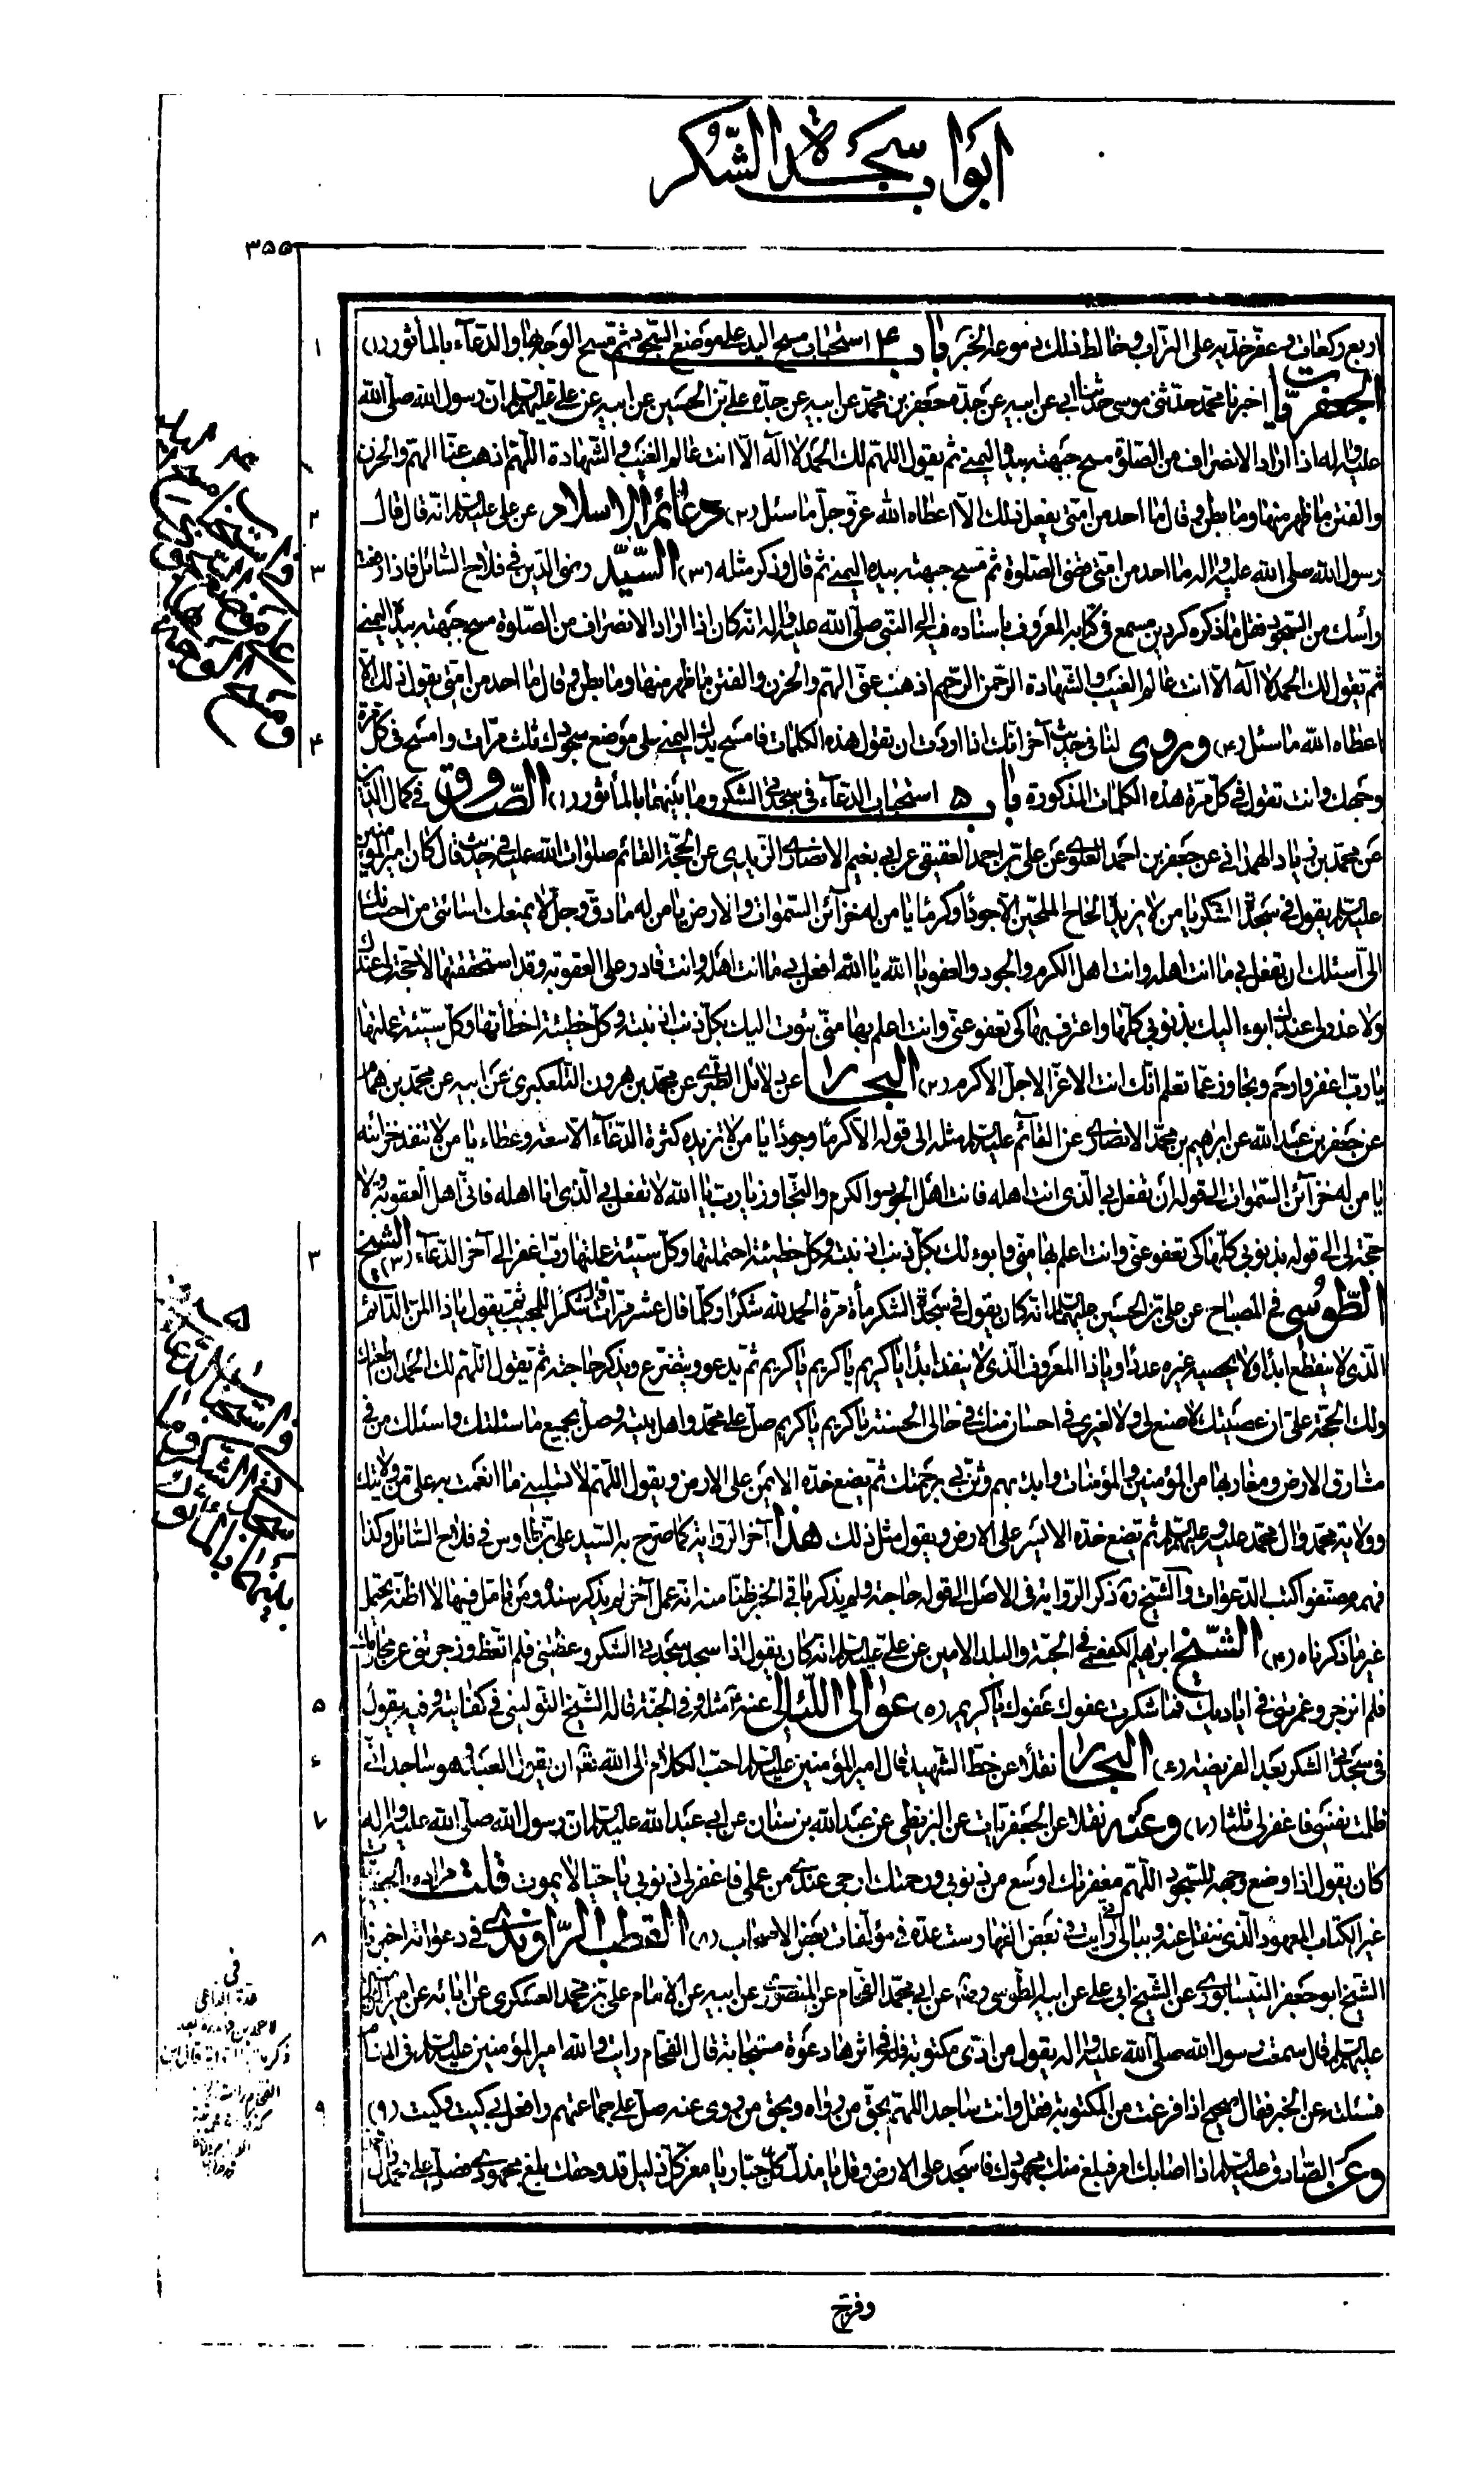 ابواب سجدة الشكر
٣٥٥
اربع ركعات و عفّر خدّيه على التراب و خالط ذلك دموعه الخبر باب ٤ استحباب مسح اليد على موضع السجود ثمّ مسح الوجه بها و الدعآء بالمأثور (١)
الجعفريات اخبرنا محمّد حدّثنى موسى حدّثنا ابى عن ابيه عن جدّه جعفر بن محمّد عن ابيه عن جدّه علىّ بن الحسين عن ابيه عن علىّ عليهم السلام ان رسول الله صلّى الله
عليه و اله اذا اراد الانصراف من الصّلوة مسح جبهته بيده اليمنى ثم يقول اللهمّ لك الحمد لا اله الّا انت عالم الغيب و الشّهادة اللّهمّ اذهب عنّا الهمّ و الحزن
و الفتن ما ظهر منها و ما بطن و قال ما احد من امّتى يفعل ذلك الّا اعطاه الله عزّ و جلّ ما سئل (٢) دعائم الاسلام عن على عليه السلام انه قال قال
رسول الله صلّى الله عليه و اله ما احد من امّتى قضى الصّلوة ثم مسح جبهته بيده اليمنى ثم قال و ذكر مثله (٣) السّيّد رضى الدّين فى فلاح السّائل فاذا رفعت
رأسك من السّجود فقل ما ذكره كردين بن مسمع فى كتابه المعروف باسناده فيه الى النّبى صلّى الله عليه و اله انه كان اذا اراد الانصراف من الصّلوة مسح جبهته بيده اليمنى
ثمّ يقول لك الحمد لا اله الّا انت عالم الغيب و الشهادة الرّحمن الرّحيم اذهب عنّى الهمّ و الحزن و الفتن ما ظهر منها و ما بطن و قال ما احد من امّتى يقول ذلك الّا
اعطاه الله ما سئل (٤) و روى لنا فى حديث آخر انّك اذا اردت ان تقول هذه الكلمات فامسح يدك اليمنى على موضع سجودك ثلث مرّات و امسح فى كل مرة
وجهك و انت تقول فى كلّ مرّة هذه الكلمات المذكورة باب ٥ استحباب الدعآء فى سجدتى الشكر و ما بينهما بالمأثور (١) الصّدوق فى كمال الدّين
عن محمّد بن زياد الهمدانى عن جعفر بن احمد العلوى عن علىّ بن احمد العقيقى عن ابى نعيم الانصارى الزيدى عن الحجّة القائم صلوات الله عليه فى حديث قال كان امير المؤمنين
عليه السلام يقول فى سجدة الشكر يا من لا يزيده الحاح الملحّين الّا جودا و كرما يا من له خزآئن السّموات و الارض يا من له ما دقّ و جلّ لا يمنعك اسائتى من احسانك
الىّ اسئلك ان تفعل بى ما انت اهله و انت اهل الكرم و الجود و العفو يا الله يا الله افعل بى ما انت اهله و انت قادر على العقوبة و قد استحققتها لا حجّة لى عندك
و لا عذر لى عندك ابوء اليك بذنوبى كلّها و اعترف بها كى تعفو عنّى و انت اعلم بها منّى بؤت اليك بكلّ ذنب اذنبته و كلّ خطيئة اخطأتها و كلّ سيّئة عملتها
يا ربّ اغفر و ارحم و تجاوز عمّا تعلم انّك انت الاعزّ الاجلّ الاكرم (٢) البحار عن دلائل الطّبرى عن محمّد بن هرون التّلعكبرى عن ابيه عن محمّد بن همّام
عن جعفر بن عبد الله عن ابراهيم بن محمّد الانصارى عن القآئم عليه السلام مثله الى قوله الّا كرما و جودا يا من لا تزيده كثرة الدّعآء الّا سعة و عطاء يا من لا تنفد خزائنه
يا من له خزآئن السّموات الى قوله ان تفعل بى الّذى انت اهله فانت اهل الجود و الكرم و التّجاوز يا ربّ يا الله لا تفعل بى الّذى انا اهله فانّى اهل العقوبة و لا
حجّة لى الى قوله بذنوبى كلّها كى تعفو عنّى و انت اعلم بها منّى و ابوء لك بكلّ ذنب اذنبته و كلّ خطيئة احتملتها و كلّ سيّئة عملتها ربّ اغفر الى آخر الدّعآء (٣) الشيخ
الطّوسى فى المصباح عن على بن الحسين عليهما السلام انه كان يقول فى سجدة الشكر مأة مرّة الحمد لله شكرا و كلّما قال عشر مرّات قال شكرا للمجيب ثمّ يقول يا ذا المنّ الدّآئم
الّذى لا ينقطع ابدا و لا يحصيه غيره عددا و يا ذا المعروف الّذى لا ينفد ابدا يا كريم يا كريم يا كريم ثم يدعو و يتضرّع و يذكر حاجته ثم يقول اللّهمّ لك الحمد ان اطعتك
و لك الحجّة علىّ ان عصيتك لا صنع لى و لا لغيرى فى احسان منك فى حالى الحسنة يا كريم يا كريم صلّ على محمّد و اهل بيته و صل بجميع ما سئلتك و اسئلك من فى
مشارق الارض و مغاربها من المؤمنين و المؤمنات و ابدء بهم و ثنّ بى برحمتك ثم يضع خدّه الايمن على الارض و يقول اللّهمّ لا تسلبنى ما انعمت به علىّ من ولايتك
و ولاية محمّد و ال محمّد عليه و عليهم السلام ثم يضع خدّه الايسر على الارض و يقول مثل ذلك هذا آخر الرّواية كما صرّح به السّيد على بن طاوس فى فلاح السّائل و كذا
فهم مصنّفوا كتب الدّعوات و الشّيخ ره ذكر الرّواية فى الاصل الى قوله حاجته و لم يذكر باقى الخبر ظنّا منه انه عمل آخر لم يذكر سنده و من تأمّل فيها لا اظنّه يحتمل
غير ما ذكرناه (٤) الشّيخ ابرهيم الكفعمى فى الجنّة و البلد الامين عن علىّ عليه السلام انه كان يقول اذا سجد سجدة الشكر وعظتنى فلم اتّعظ و زجرتنى عن محارمك
فلم انزجر و غمرتنى فى اياديك فما شكرت عفوك عفوك يا كريم (٥) عوالى اللّئالى عنه مثله و فى الجنّة قاله الشّيخ التولينى فى كفايته و فيه يقول
فى سجدة الشكر بعد الفريضة (٦) البحار نقلا عن خطّ الشّهيد قال امير المؤمنين عليه السلام احبّ الكلام الى الله تعالى ان يقول العبد و هو ساجد انّى
ظلمت نفسى فاغفر لى ثلثا (٧) و عنه نقلا عن الجعفريات عن البزنطى عن عبد الله بن سنان عن ابى عبد الله عليه السلام ان رسول الله صلّى الله عليه و اله
كان يقول اذا وضع وجهه للسّجود اللّهمّ مغفرتك اوسع من ذنوبى و رحمتك ارجى عندى من عملى فاغفر لى ذنوبى يا حيّا لا يموت قلت مراده بالجعفريات
غير الكتاب المعهود الّذى ننقل عنه و ببالى انّى رأيت فى بعض الفهارست عدّه فى مؤلّفات بعض الاصحاب (٨) القطب الرّاوندى فى دعواته اخبرنا
الشّيخ ابو جعفر النّيسابورى عن الشّيخ ابى على عن ابيه الطّوسى رضه عن ابى محمّد الفحّام عن المنصورى عن ابيه عن الامام على بن محمّد العسكرى عن ابائه عن امير المؤمنين
عليهم السلام قال سمعت رسول الله صلّى الله عليه و اله يقول من ادّى مكتوبة فله فى اثرها دعوة مستجابة قال الفحّام رايت و الله امير المؤمنين عليه السلام فى المنام
فسئلته عن الخبر فقال صحيح اذا فرغت من المكتوبة فقل و انت ساجد اللهمّ بحقّ من رواه و بحق من روى عنه صلّ على جماعتهم و افعل بى كيت و كيت (٩)
و عن الصّادق عليه السلام اذا اصابك امر فبلغ منك مجهودك فاسجد على الارض و قل يا مذلّ كلّ جبّار يا معزّ كلّ ذليل قد و حقك بلغ مجهودى فصلّ على محمّد و آل
و فرّج